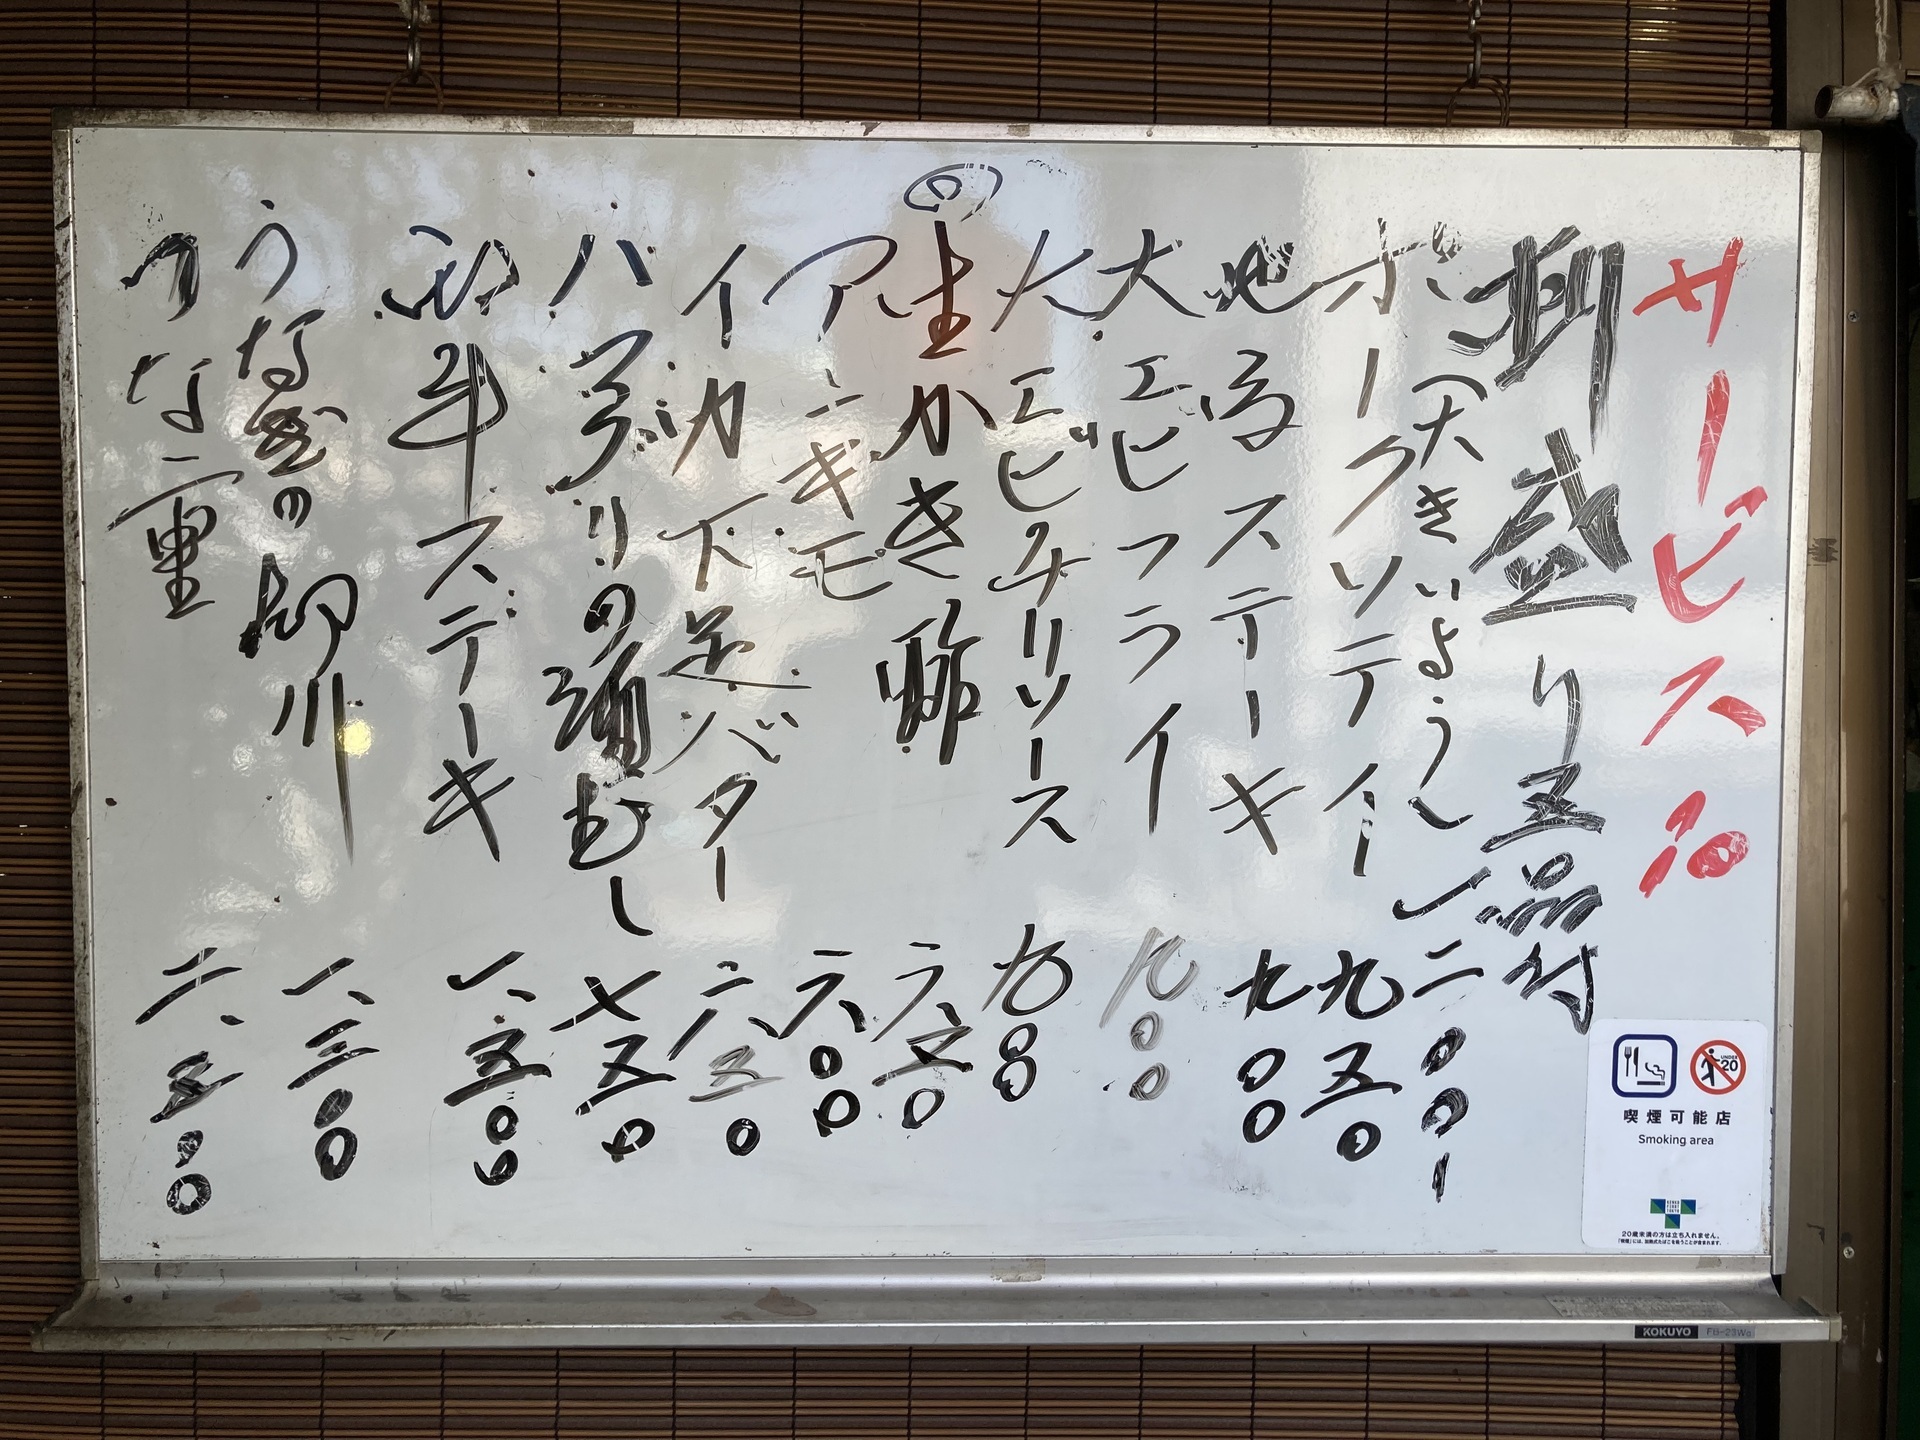 サービス品
刺盛り五品付
(大きいよう) 一二〇〇
ポークソテイー 九五〇
地鶏ステーキ 九〇〇
大エビフライ 九〇〇
大エビチリソース 九〇〇
生かき酢 六五〇
アンキモ 六〇〇
イカ下足バター 六五〇
ハマグリの酒むし 七五〇
和牛ステーキ 一、五〇〇
うなぎの柳川 一、三〇〇
うな重 二、五〇〇
UNDER 20
喫煙可能店
Smoking area
20歳未満の方は立ち入れません。
KOKUYO FB-23Wa